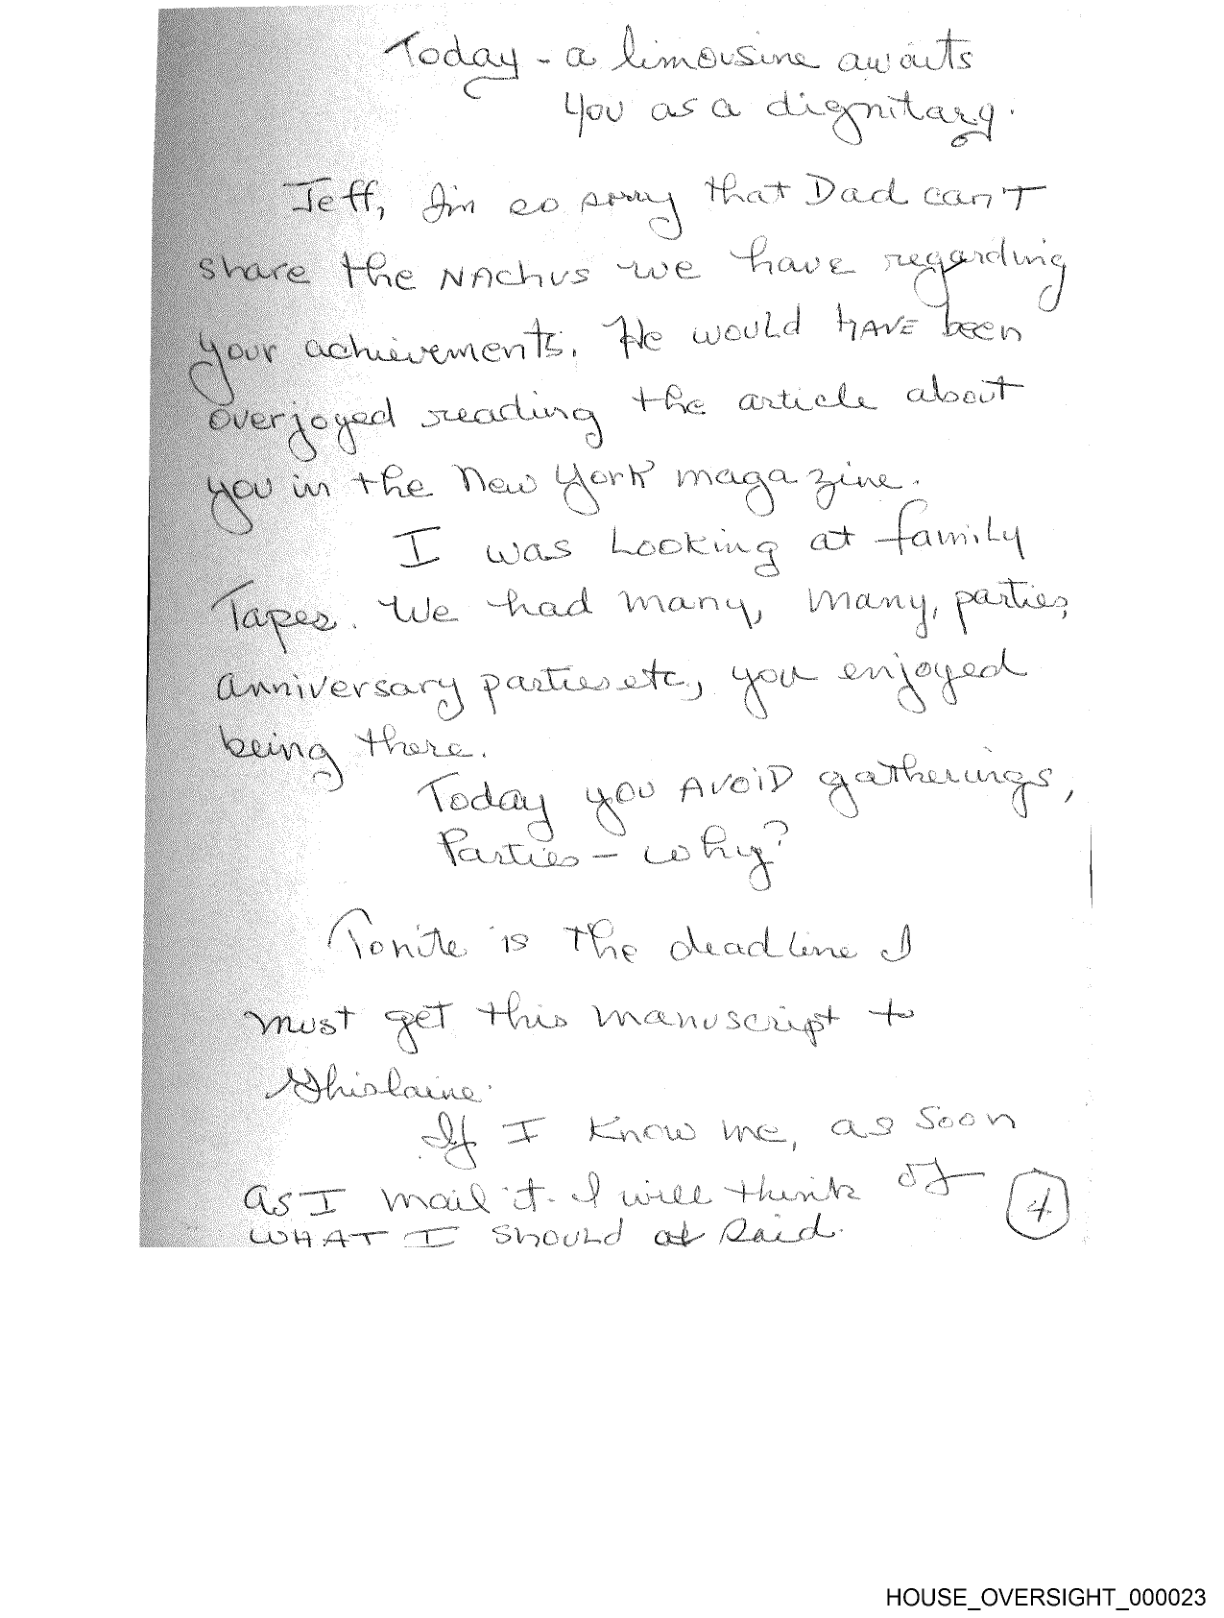 Today - a limousine awaits
you as a dignitary.
Jeff, I'm so sorry that Dad can't
share the NAchus we have regarding
your achievements. He would HAVE been
overjoyed reading the article about
you in the New York magazine.
I was Looking at family
Tapes. We had many, many, parties,
anniversary parties etc, you enjoyed
being there.
Today you AVOiD gatherings,
Parties - why?
Tonite is the deadline I
must get this manuscript to
Ghislaine.
If I know me, as soon
as I mail it - I will think of
WHAT I should at said.
4
HOUSE_OVERSIGHT_000023